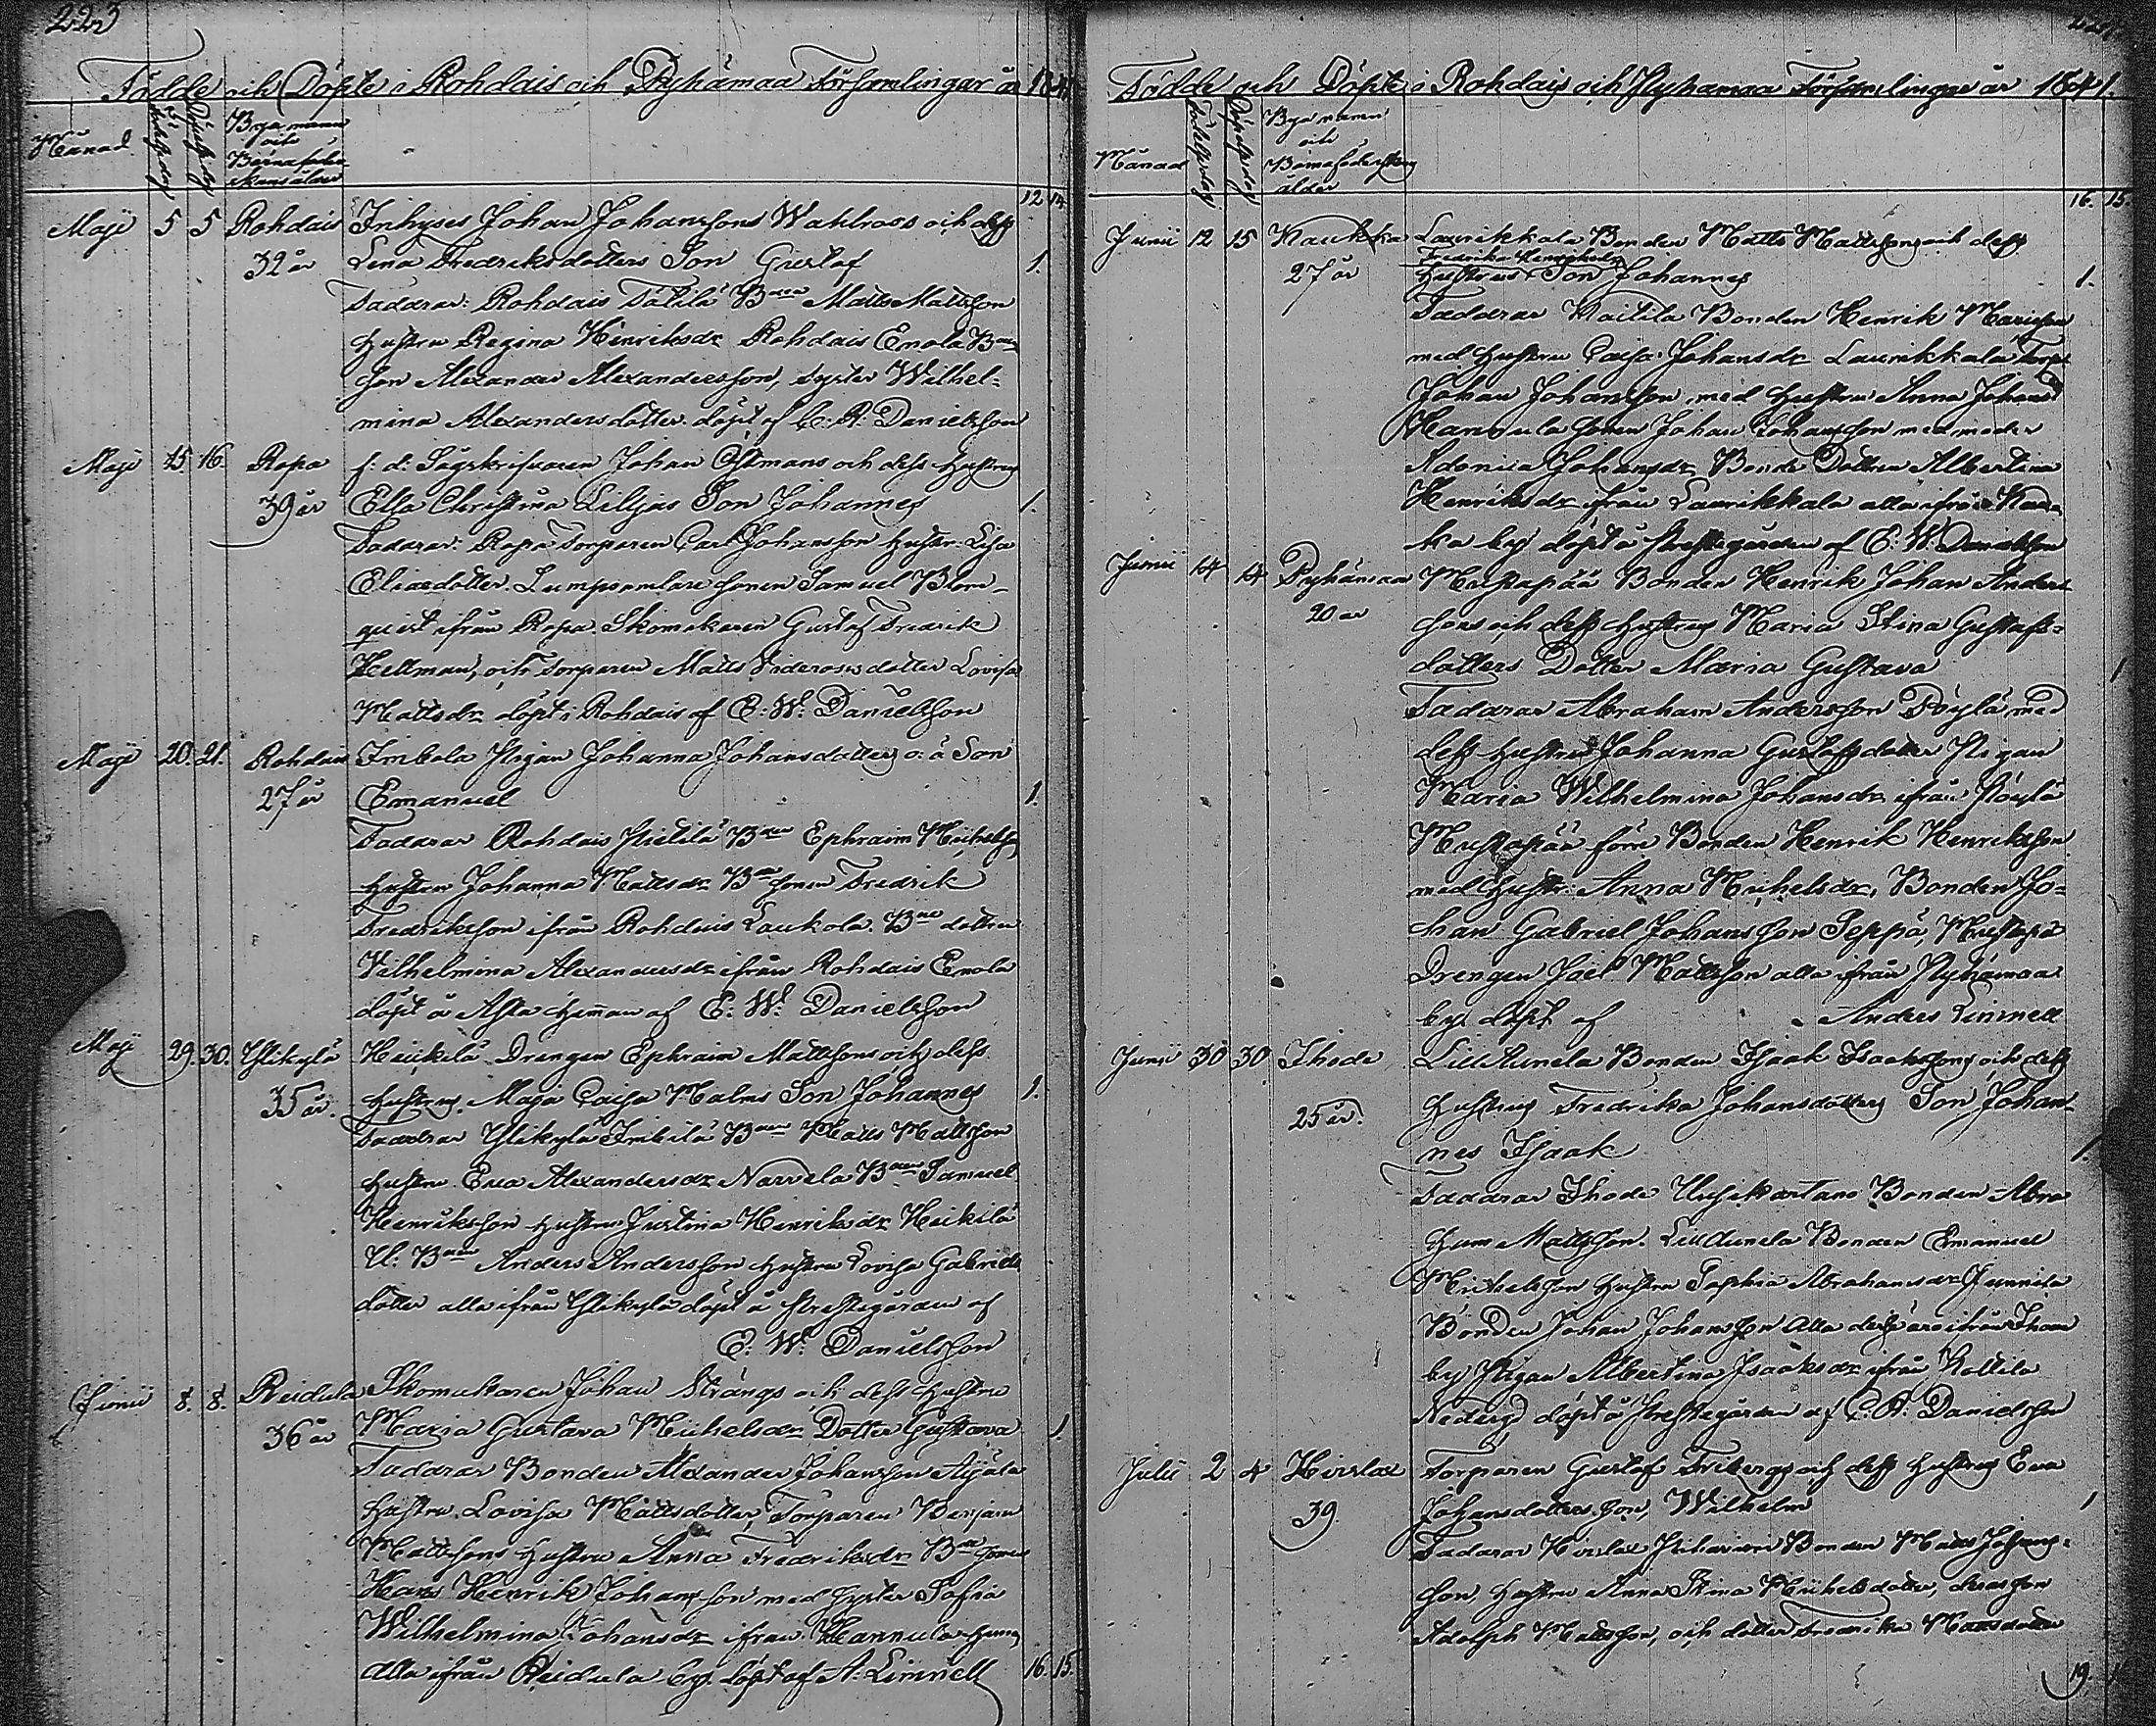 223
Födde och Döpte i Rohdais och Pyhämaa Församlingar år 1841
Månad Födelsedag Döpelsedag Byanamn och Barnaföderskans ålder
12 14
Maji 5 5 Rohdais Inhyses Johan Johanssons Wahlroos och dess
32 år Lena Fredriksdotters Son Gustaf 1.
Faddrar: Rohdais Tätilä Bden Matts Mattsson
hustru Regina Henriksdr Rohdais Enola Bde
Son Alexander Alexandersson, syster Wilhel-
mina Alexandersdotter döpt af E. W. Danielsson
Maji 15 16. Ropa f: d: Sågskrifvaren Johan Östmans och dess Hustrus
39 år Ella Christina Liljas Son Johannes 1.
Faddrar: Ropa Torparen Carl Johansson hustr. Lisa
Eliasdotter. Lumpsamlare sonen Samuel Blom-
quist ifrån Ropa. Skomakaren Gustaf Fredrik
Hellman, och Torparen Matts dotter Lovisa
Mattsdr döpt i Rohdais af E. W. Danielsson
Maji 20. 21. Rohdais Imbola Pigan Johanna Johansdotters o: ä Son
27 år Emanuel 1.
Faddrar Rohdais Pietilä Bden Ephraim Michelsson
hustru Johanna Mattsdr Bde sonen Fredrik
Fredriksson ifrån Rohdais Laukola. Bde dottren
Wilhelmina Alexandersdr ifrån Rohdais Enola
döpt å Asta hemman af E. W. Danielsson
Maji 29. 30. Ylikylä Heikilä Drengen Ephraim Mattssons och dess
35 år. hustrus Maja Caisa Malms Son Johannes 1.
Faddrar Ylikylä Imbilä Bden Matts Mattsson
hustru Eva Alexandersdr Narvela Bden Samuel
Henriksson hustru Justina Henriksdr Heikilä
U. Bden Anders Andersson hustru Lovisa Gabriels
dotter alla ifrån Ylikylä döpt å Prestegården af
E. W. Danielsson
Junii 8. 8. Reidula Skomakaren Johan Strångs och dess hustru
36 år Maria Gustava Michelsdr Dotter Gustava 1
Faddrar Bonden Alexander Johansson Äijälä
hustru Lovisa Mattsdotter, Torparen Benjam
Mattssons hustru Anna Fredriksdr Bde sonen
Hans Henrik Johansson med syster Sofia
Wilhelmina Johansdr ifrån Hannula hem
alla ifrån Reidula by. döpt af A. Limnell 16. 15.
224
Födde och Döpte i Rohdais och Pyhämaa Församlingar år 1841.
Månad Födelsedag Döpelsedag Byanamn och Barnaföderskans ålder
16. 15.
Junii 12 15 Kaukka Laurikkala Bonden Matts Mattssons och dess
Fredrika Henriksdr
27 år hustrus Son Johannes 1.
Faddrar Maitila Bonden Henrik
med hustru Caisa Johansdr Laurikkala Torp
Johan Johansson med hustru Anna Johansd
Hannula sonen Johan Johansson med moder
Adonia Johansdr Bonde Dottren Albertina
Henriksdr ifrån Laurikkala alla ifrån Kau-
ka by döpt å Prestegården af E. W. Danielsson
Junii 14 14 Pyhämaa Mustapää Bonden Henrik Johan Anders
20 år sons och dess hustrus Maria Stina Gustafs-
dotters Dotter Maria Gustava 1
Faddrar Abraham Andersson Pöylä med
dess hustru Johanna Gustafsdotter Pigan
Maria Wilhelmina Johansdr ifrån Pöylä
Mustapää förre Bonden Henrik Henriksson
med hustr: Anna Michelsdr, Bonden Jo-
han Gabriel Johansson Seppä, Mustapä
Drengen Joel Mattsson alla ifrån Pyhämaa
by döpt af Anders Limnell
Junii 30 30 Ihode Lill Aunela Bonden Isaak Isaakssons och dess
25 år. hustrus Fredrika Johansdotters Son Johan-
nes Isaak 1.
Faddrar Ihode Uusikartano Bonden Abra
ham Mattsson. Lill Aunela Bonden Emanuel
Michelsson hustru Sophia Abrahamsdr Junnila
Bonden Johan Johansson Alla desse äro ifrån Ihode
by Pigan Albertina Isaaksdr ifrån Kollila
döpt å Prestegården af E. W. Danielsson
Julii 2 4 Hirslax Torparen Gustaf Fribergs och dess hustrus Eva
39. Johansdotters son, Wilhelm 1
Faddrar Hirslax Bonden Matts Johans-
son, hustru Anna Stina Michelsdotter, deras son
Adolph Mattsson, och dotter Fredrika Mattsdotter
19.